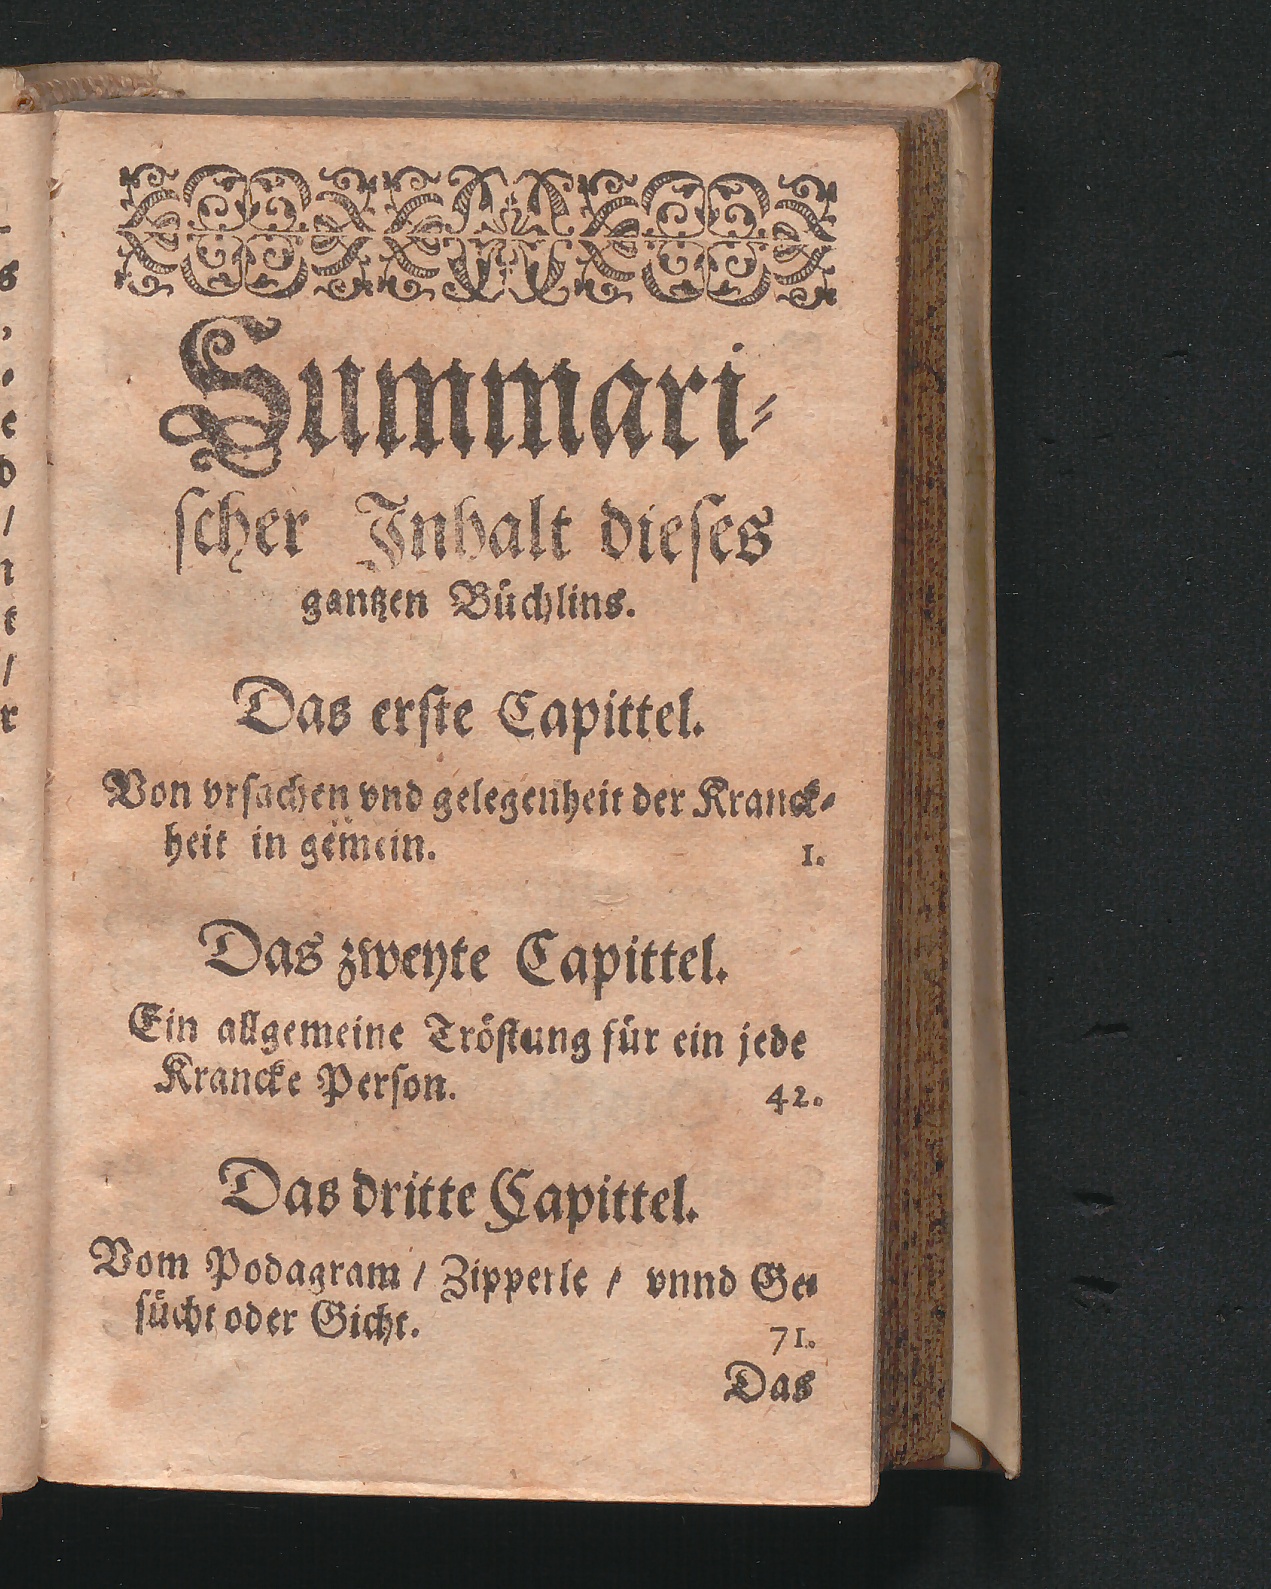 Summari⸗
ſcher Inhalt dieſes
gantzen Büchlins.
Das erſte Capittel.
Von vrſachen vnd gelegenheit der Kranck⸗
heit in gemein.
1.
Das zweyte Capittel.
Ein allgemeine Tröſtung für ein jede
Krancke Perſon.
42.
Das dritte Capittel.
Vom Podagram / Zipperle / vnnd Ge⸗
ſücht oder Gicht.
71.
Das